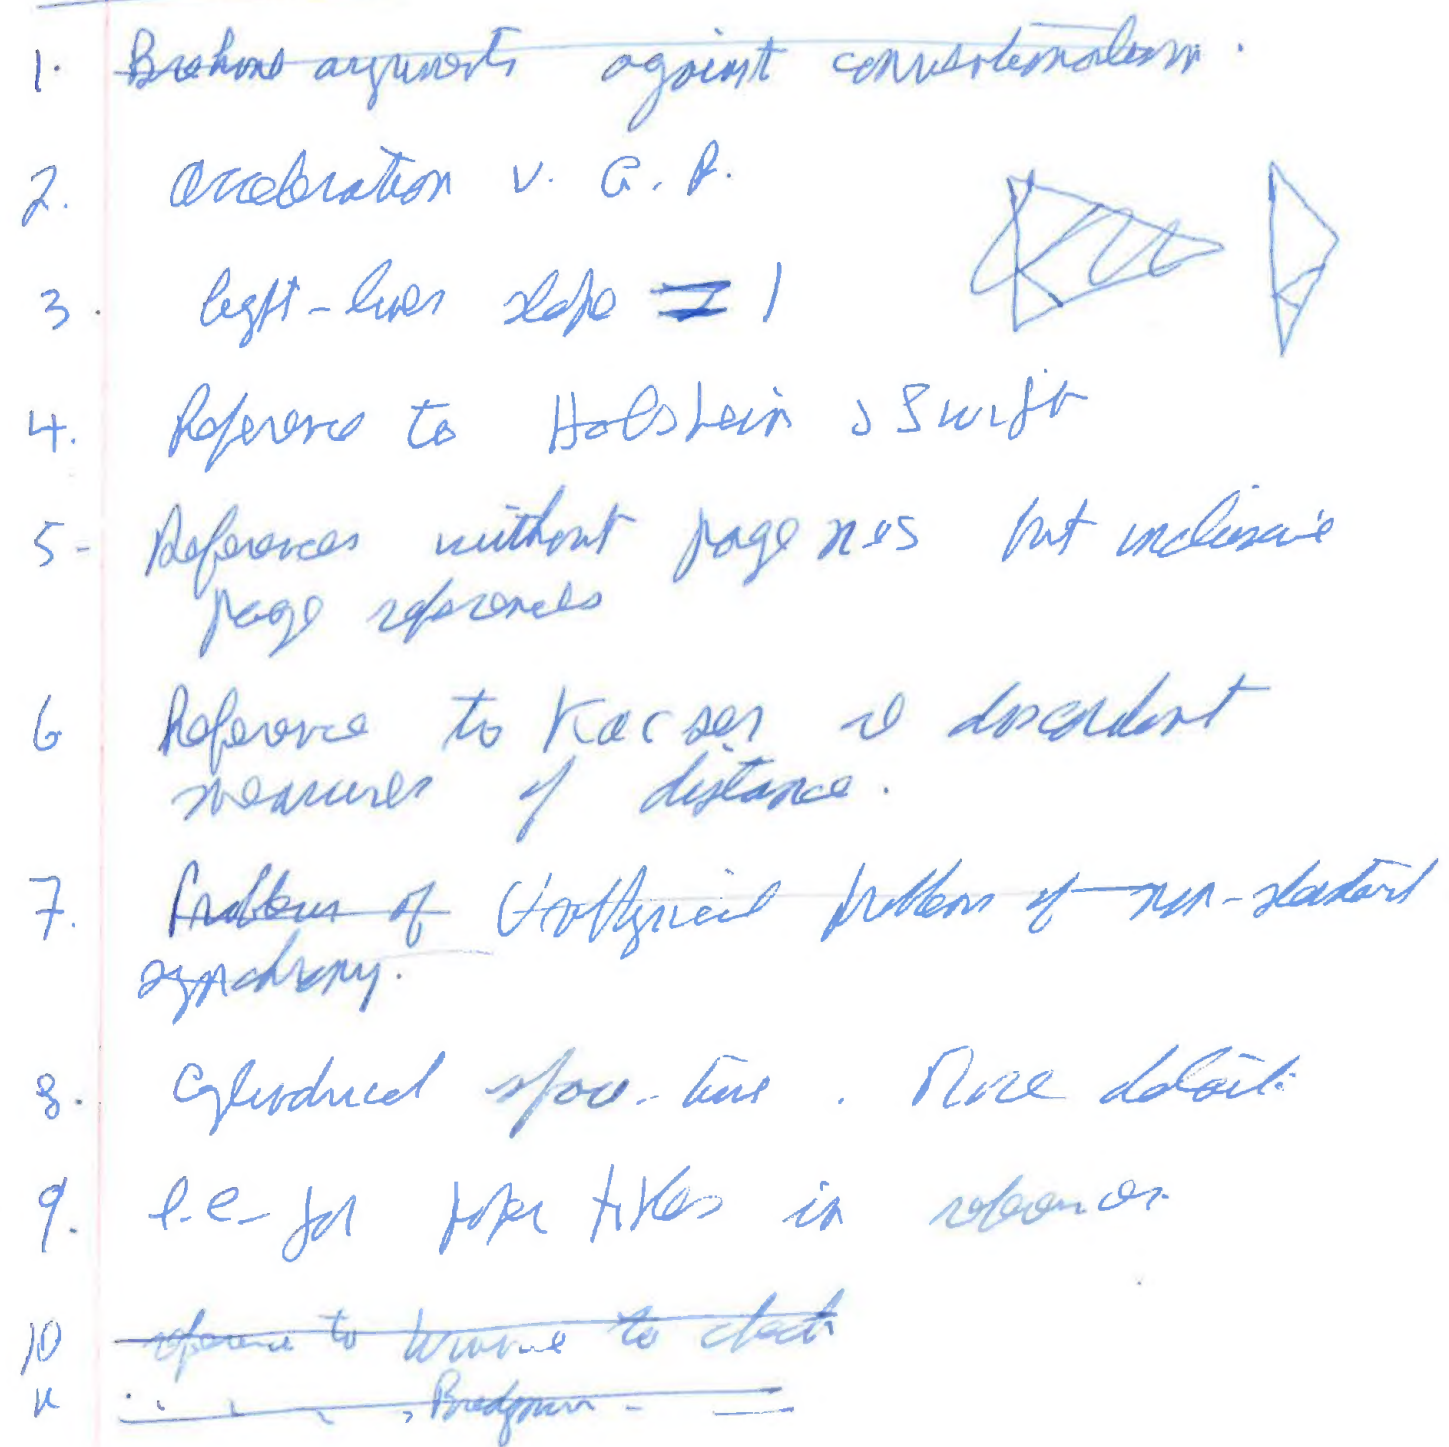 1. Brehme arguments against conventionalism.
2. Acceleration v. G. R.
3. light-lines slope = 1
4. Reference to Holstein & Swift
5- References without page nos but inclusive
page references
6 Reference to Kacser re discordant
measures of distance.
7. Problems of problems of non-standard
synchrony.
8. Cylindrical space-time. More detail.
9. l.c. for paper titles in references
10 reference to to check
11 " " " " Bridgman -